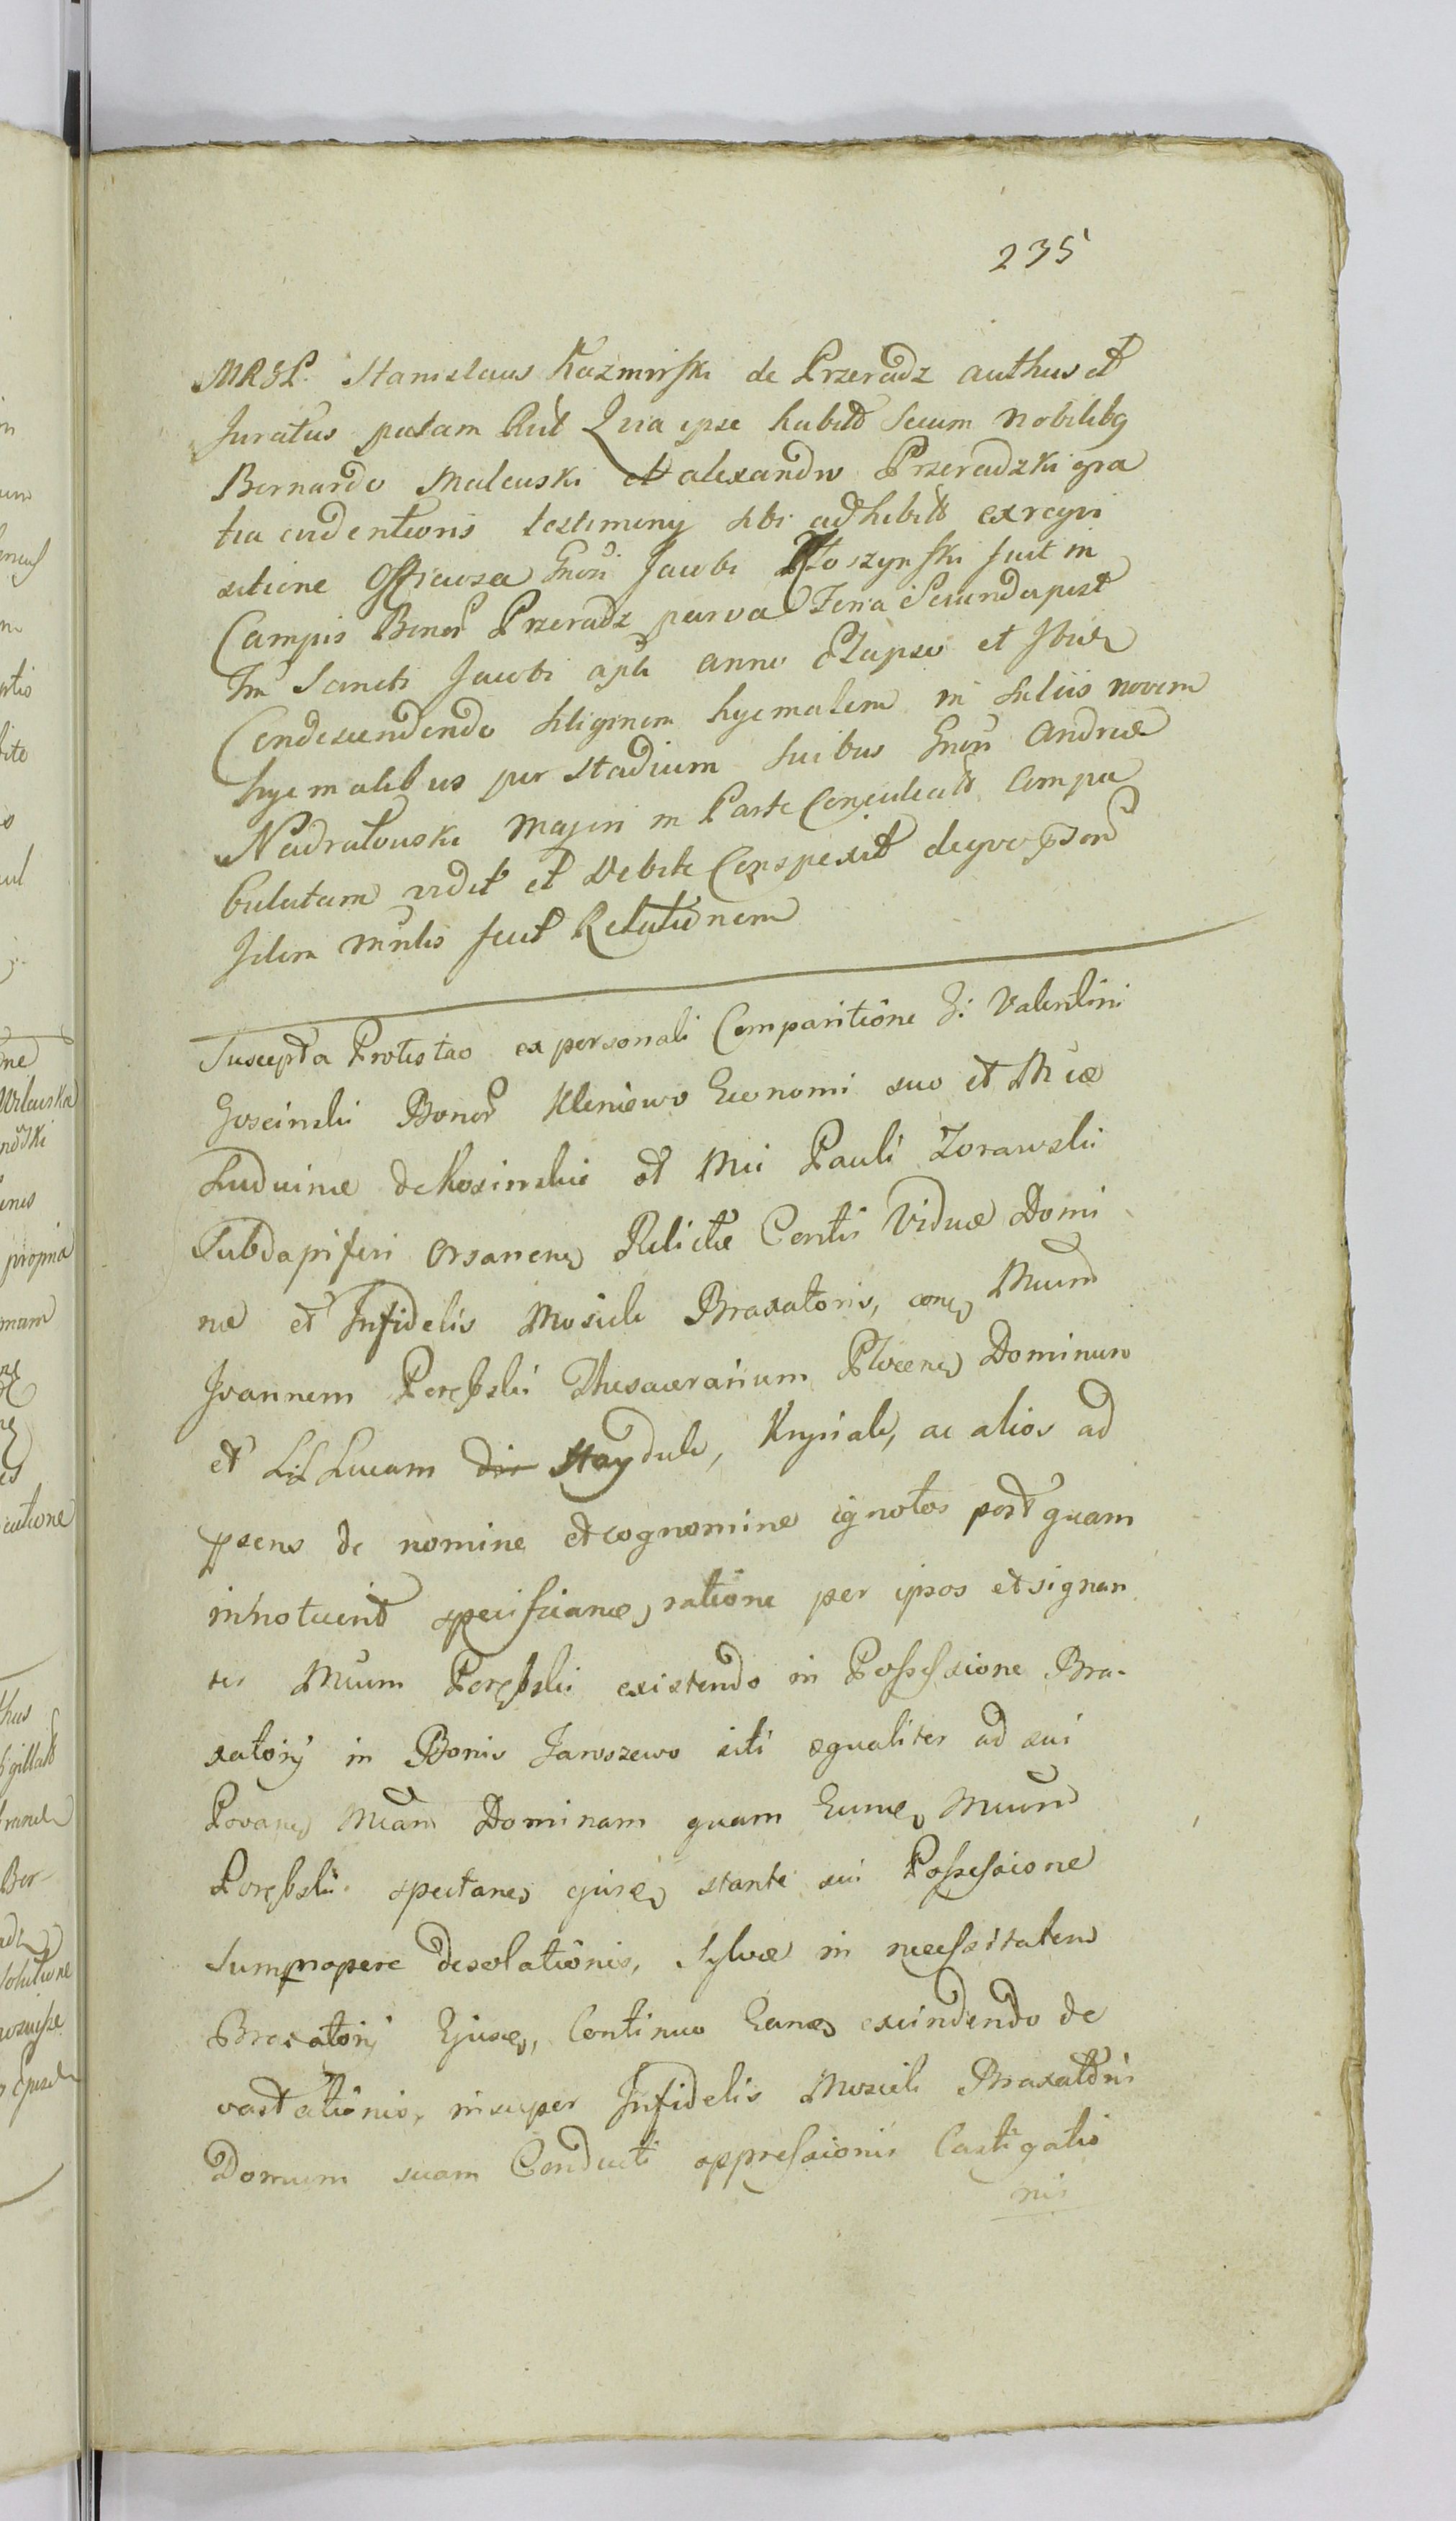 235
MRGL. Stanislaus Kazmirski de Przeradz authus et
Juratus palam Rlt Quia ipse habitt secum Nobilibq
Bernardo Maleuski et alexandro Przeradzki gra
tia evidentioris testimony sibi adhibitt exreqvi
sitione Officiosa Gnosi Jacobi Kłoszynski fuit in
Campis Bonor Przeradz parva Feria Secunda post
Fm Sancti Jacobi apli anno Elapso et Ibiq
Condescendendo siliginem hyemalem in sulcis novem
hyemalibus per stadium suibus Gnosi Andreæ
Nadratouski Majori in Parte Conculcatt Compa
bulatam vidit et Debite Conspexit deqvo pson
Idem mnlis fecit Relationem
Suscepta Protestao ex personali Comparitione G: Valentini
Goscinski Bonor Kleniewo Economi suo et Mcæ
Ludvinæ de Kosinskie et Mci Pauli Zorawski
Subdapiferi Orsanens Relictæ Contis Viduæ Domi
næ et Infidelis Mosiek Braxatoris, nomine, conq Mcum
Joannem Porębski Thesaurarium Plocens Dominum
et L: Lucam Hayduk, Krysiak, ac alios ad
psens de nomine et cognomine ignotos postquam
innotuerint specificanos, ratione per ipsos et signan
ter Mcum Porębski existendo in Possessione Bra-
xatorij in Bonis Jaroszewo siti æqualiter ad sui
Prvanes Mcam Dominam quam Eumq Mcum
Porębski spectanes ejusq stante sui Possessione
Summopere desolationis, Sylvæ in necessitatem
Braxatorij Ejusq, Continuo Eanq excindendo de
vastationis, insuper Infidelis Mosiek Braxatoris
Domum suam Conducti oppressionis Castigatio
nis